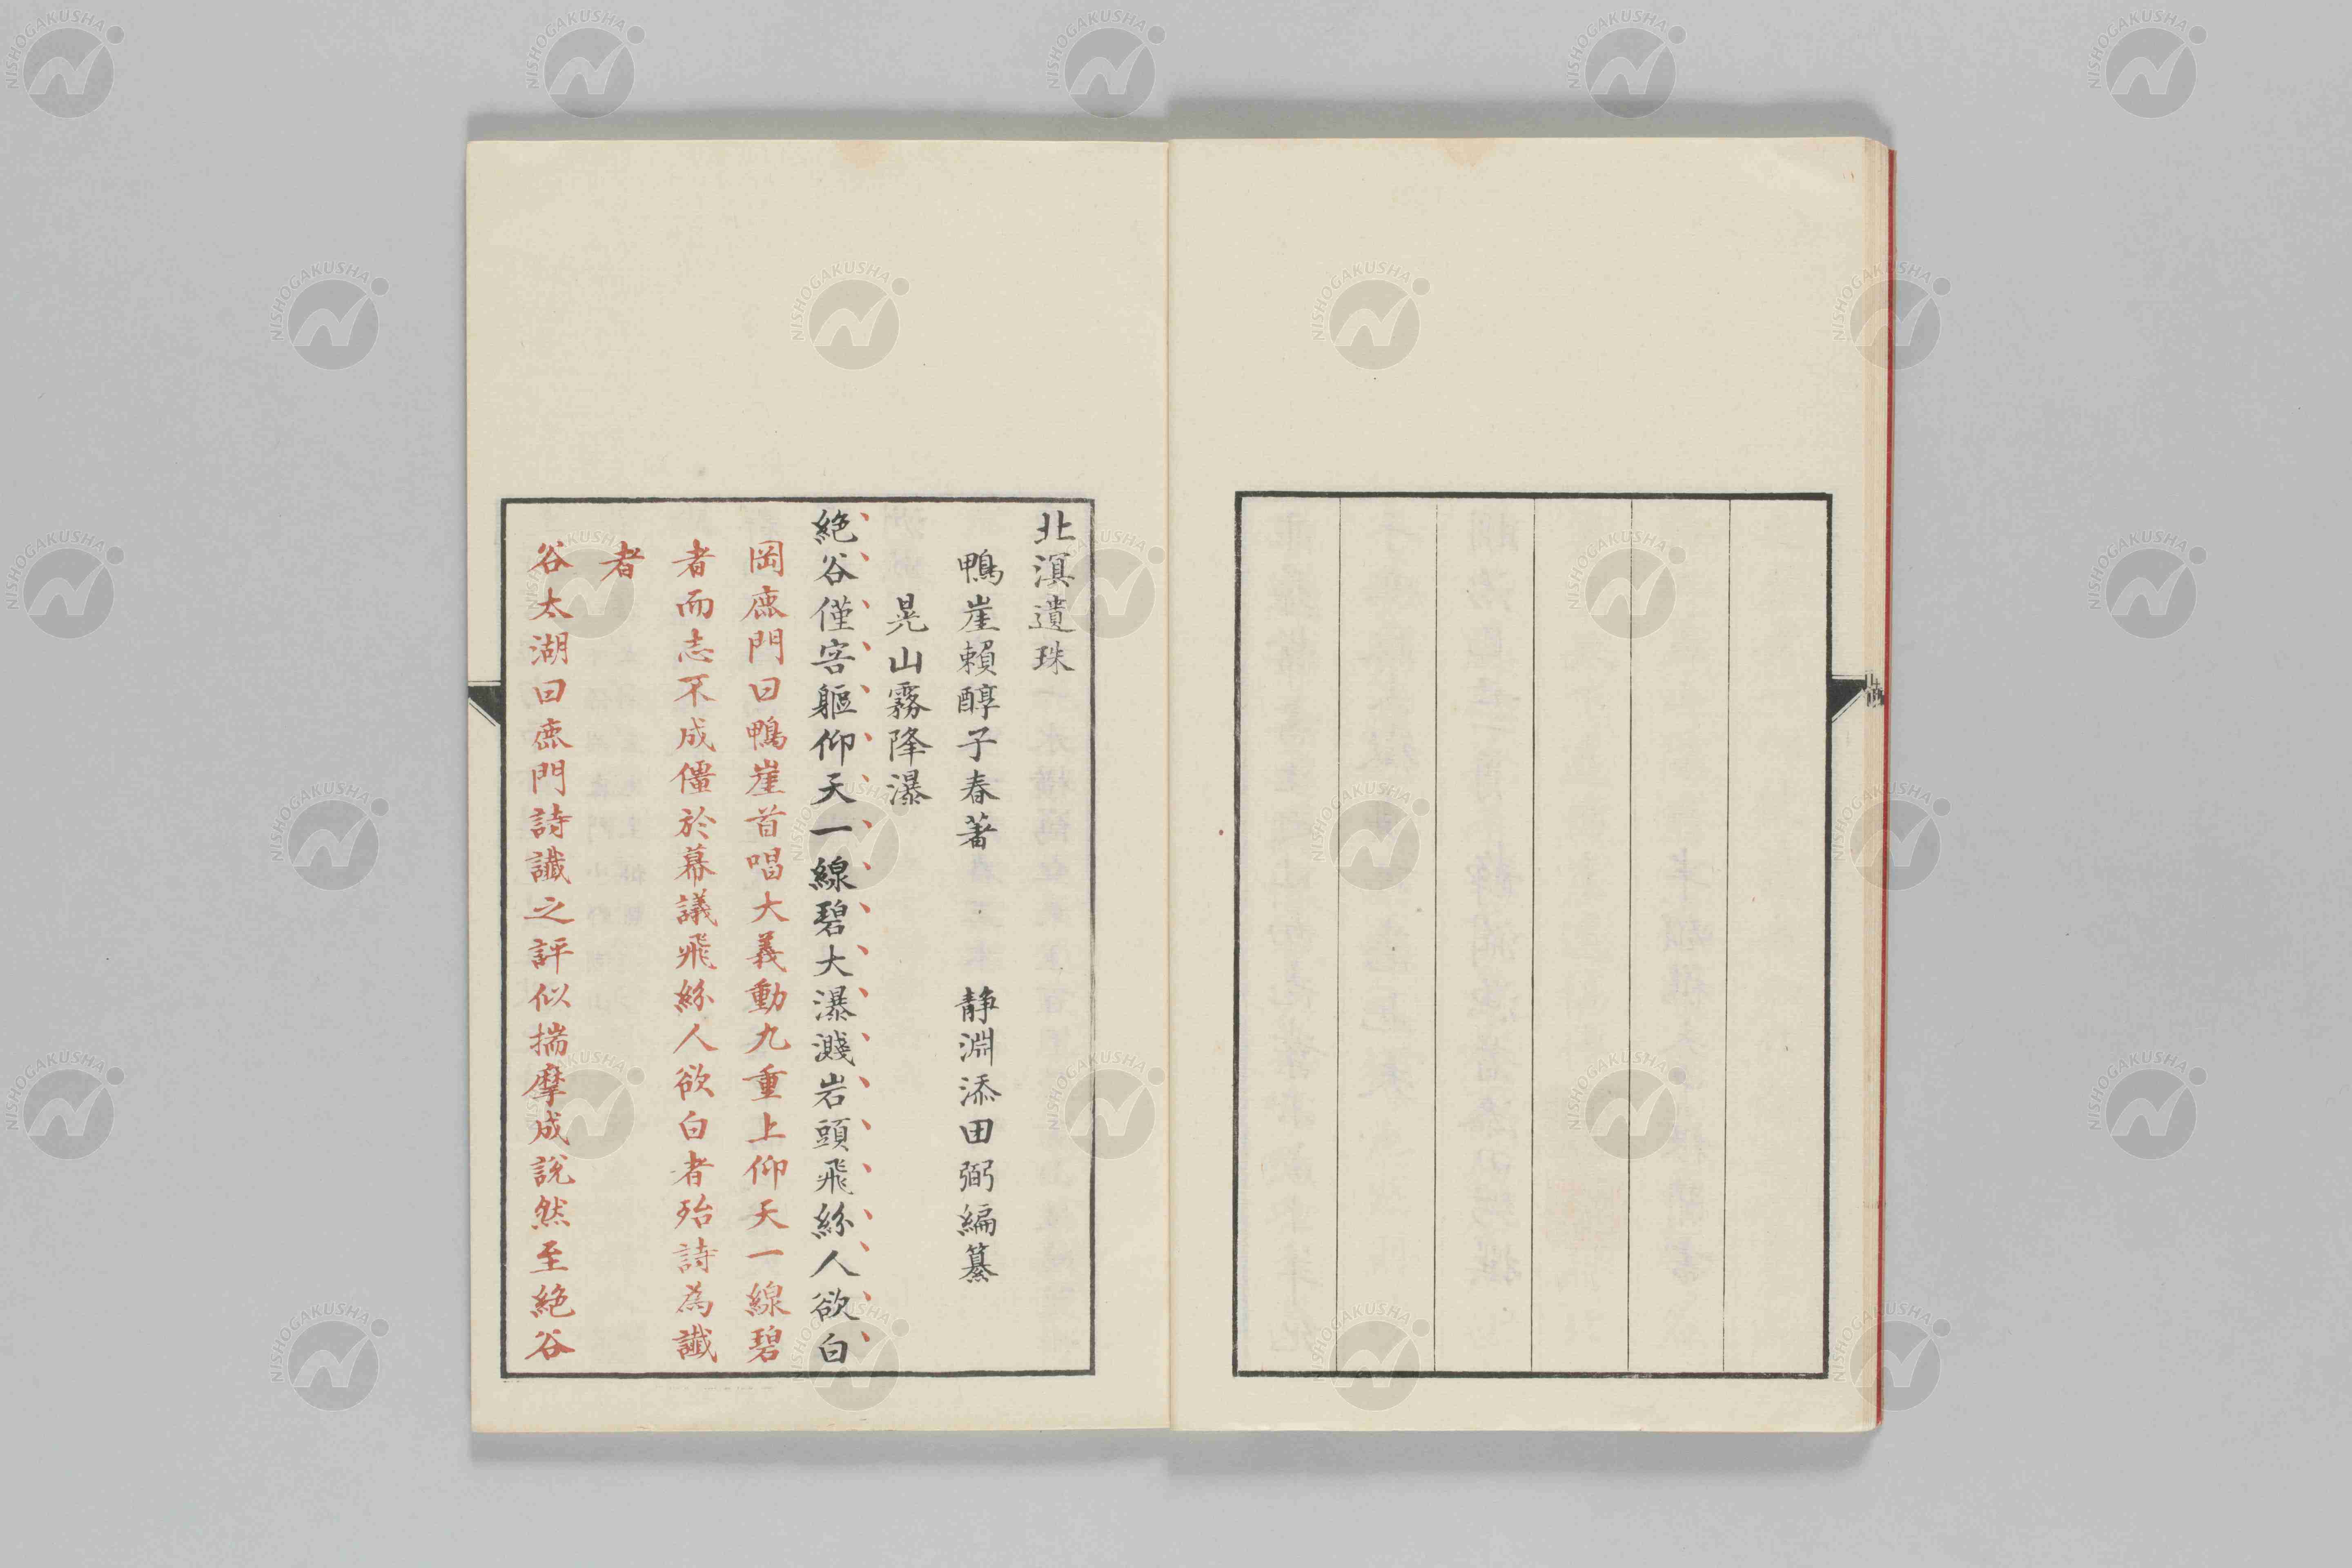 北溟遺珠
鴨崖賴醇子春著　静淵添田弼編纂
晃山霧降瀑
絶谷僅容軀仰天一線碧大瀑濺岩頭飛紛人欲白
岡鹿門曰鴨崖首唱大義動九重上仰天一線碧
者而志不成僵於幕議飛紛人欲白者殆詩為讖
者
谷太湖曰鹿門詩讖之評似揣摩成説然至絶谷
NISHOGAKUSHA